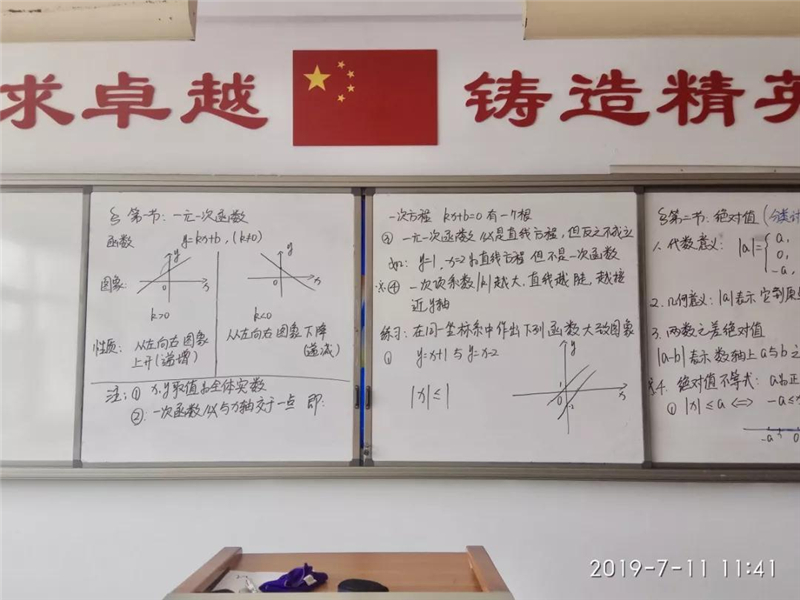 求卓越
铸造精英
§第一节:一元一次函数
函数 y=kx+b,(k≠0)
图象
y
x
0
y
x
0
k>0
k<0
性质:从左向右图象
上升(递增)
从左向右图象下降
(递减)
注:① x,y取值为全体实数
②:一次函数必与x轴交于一点 即:
一次方程 kx+b=0有一个根
③ 一元一次函数必是直线方程,但反之不成立
如:y=1,x=2为直线方程但不是一次函数
※④ 一次项系数|k|越大,直线越陡,越接
近y轴
练习:在同一坐标系中作出下列函数大致图象
① y=x+1与y=x-2
|x|≤1
y
x
1
0
-2
§第二节:绝对值(分类讨
1.代数意义:|a|={a,
0,
-a,
2.几何意义:|a|表示它到原
3.两数之差绝对值
|a-b|表示数轴上a与b之
※4.绝对值不等式:a为正
① |x|≤a⟺ -a≤x
-a
0
2019-7-11 11:41